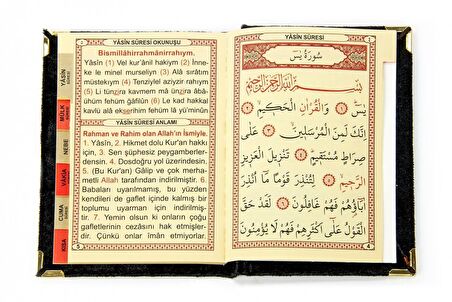 YÂSÎN SÛRESİ OKUNUŞU
Bismillâhirrahmânirrahıym.
Yâsîn (1) Vel kur'ânil hakiym (2) İnne-
ke le minel murseliyn (3) Alâ sırâtın
müstekıym (4) Tenziylel aziyzir rahıym
(5) Li tünzira kavmem mâ ünzira âbâ-
ühüm fehüm ğâfilûn (6) Le kad hakkal
kavlü alâ ekserihim fehüm lâ yü'minûn
YÂSÎN SÛRESİ ANLAMI
Rahman ve Rahim olan Allah'ın İsmiyle.
1. Yâsîn, 2. Hikmet dolu Kur'an hakkı
için, 3. Sen şüphesiz peygamberler-
densin. 4. Dosdoğru yol üzerindesin.
5. (Bu Kur'an) Gâlip ve çok merha-
metli Allah tarafından indirilmiştir. 6.
Babaları uyarılmamış, bu yüzden
kendileri de gaflet içinde kalmış bir
toplumu uyarman için indirilmiş-
tir. 7. Yemin olsun ki onların çoğu
gafletlerinin cezasını hak etmişler-
dir. Çünkü onlar iman etmiyorlar.
YÂSÎN
MÜLK
NEBE
VÂKIA
CUMA
KISA
YÂSÎN SÛRESİ
سُورَةُ يٰسٓ
بِسْمِ اللّٰهِ الرَّحْمٰنِ الرَّحِيمِ
يٰسٓ ﴿١﴾ وَالْقُرْاٰنِ الْحَكِيمِ ﴿٢﴾
اِنَّكَ لَمِنَ الْمُرْسَلِينَ ﴿٣﴾ عَلٰى
صِرَاطٍ مُسْتَقِيمٍ ﴿٤﴾ تَنْزِيلَ الْعَزِيزِ
الرَّحِيمِ ﴿٥﴾ لِتُنْذِرَ قَوْمًا مَٓا اُنْذِرَ
اٰبَٓاؤُهُمْ فَهُمْ غَافِلُونَ ﴿٦﴾ لَقَدْ حَقَّ
الْقَوْلُ عَلٰٓى اَكْثَرِهِمْ فَهُمْ لَا يُؤْمِنُونَ
4